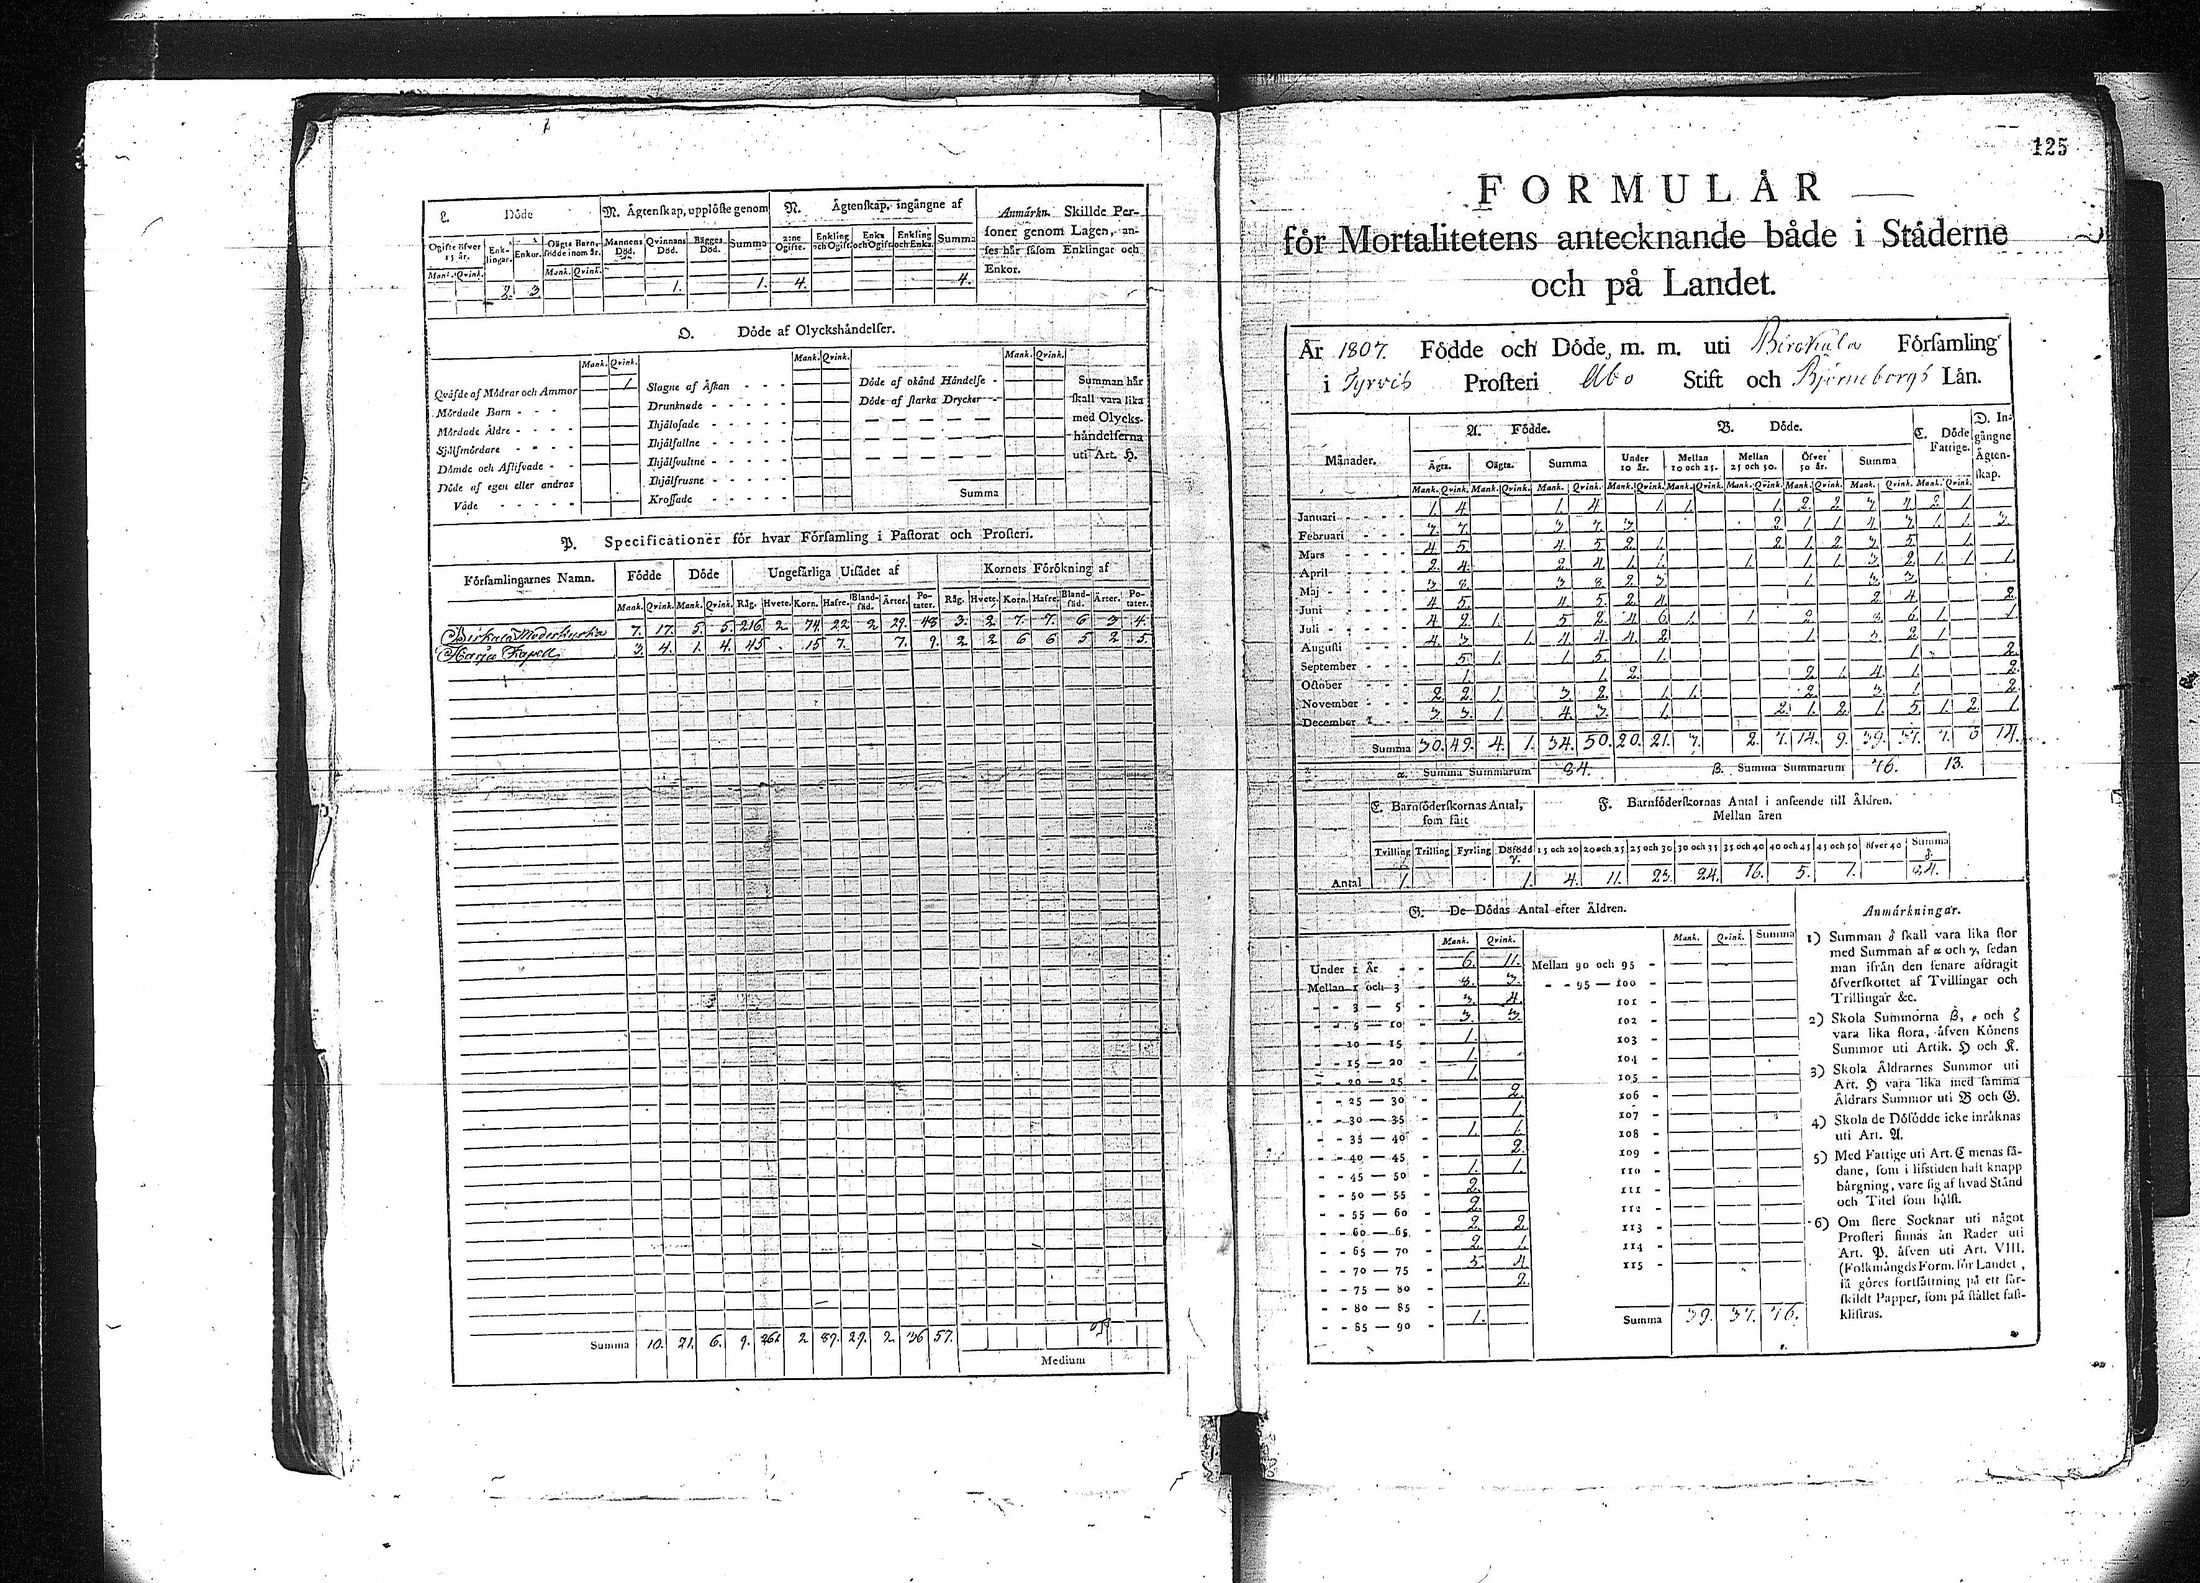 L. Döde
M. Ägtenskap, upplöste genom
N. Ägtenskap, ingångne af
Anmärkn. Skillde Personer genom Lagen, anses här såsom Enklingar och Enkor.
Ogifte öfver 15 år. Enklingar. Enkor. Oägta Barn, födde inom år. Mannens Död. Qvinnans Död. Bägges Död. Summa 2:ne Ogifte. Enkling och Ogift. Enka och Ogift. Enkling och Enka. Summa
Mank. Qvink. Mank. Qvink.
2. 3. 1. 1. 4. 4.
O. Döde af Olyckshändelser.
Mank. Qvink. Mank. Qvink. Mank. Qvink.
Qväfde af Mödrar och Ammor 1
Mördade Barn
Mördade Äldre
Sjelfmördare
Dömde och Aflifvade
Döde af egen eller andras
Våde
Slagne af Åskan
Drunknade
Ihjälosade
Ihjälfallne
Ihjälsvultne
Ihjälfrusne
Krossade
Döde af okänd Händelse
Döde af starka Drycker
Summa
Summan här
skall vara lika
med Olycks-
händelserna
uti Art. H.
P. Specificationer för hvar Församling i Pastorat och Prosteri.
Församlingarnes Namn. Födde Döde Ungefärliga Utsädet af Kornets Förökning af
Mank. Qvink. Mank. Qvink. Råg. Hvete. Korn. Hafre. Blandsäd. Ärter. Potater. Råg. Hvete. Korn. Hafre. Blandsäd. Ärter. Potater.
Birkala Moderkyrka 7. 17. 5. 5. 216. 2. 74. 22. 2 29. 48 3. 2. 7. 7. 6 3 4.
Harju Kapell 3. 4. 1. 4. 45 15 7. 7. 9. 2 2 6 6 5 2 5.
Summa 10. 21. 6. 9. 261 2 89. 29. 2. 36 57.
Medium
125
FORMULÅR
för Mortalitetens antecknande både i Städerne
och på Landet.
År 1807. Födde och Döde, m. m. uti Birckala Församling
i Tyrvis Prosteri Åbo Stift och Björneborgs Län.
Månader. A. Födde. B. Döde. C. Döde Fattige. D. Ingångne Ägtenskap.
Ägta. Oägta. Summa Under 10 år. Mellan 10 och 25. Mellan 25 och 50. Öfver 50 år. Summa
Mank. Qvink. Mank. Qvink. Mank. Qvink. Mank. Qvink. Mank. Qvink. Mank. Qvink. Mank. Qvink. Mank. Qvink. Mank. Qvink.
Januari 1. 4. 1. 4. 1. 1. 1. 2. 2. 3. 4. 2. 1.
Februari 3. 7. 3. 7. 3. 2. 1. 1. 4. 3. 1. 1. 3.
Mars 4. 5. 4. 5. 2. 1. 2. 1. 2. 3. 5. 1.
April 2. 4. 2. 4. 1. 1. 1. 1. 1. 3. 2. 1. 1. 1.
Maj 3. 8. 3. 8. 2. 3. 1. 3. 3.
Juni 4. 5. 4. 5. 2. 4. 2. 4. 2.
Juli 4. 2. 1. 5. 2. 4. 6. 1. 1. 2. 8. 6. 1. 1.
Augusti 4. 3. 1. 4. 4. 4. 2. 1. 3. 2. 1.
September 5. 1. 1. 5. 1. 1. 2.
October 1. 1. 2. 2. 1. 4. 1. 2.
November 2. 2. 1. 3. 2. 1. 1. 2. 3. 1. 2.
December 3. 3. 1. 4. 3. 1. 2. 1. 2. 1. 5. 1. 2. 1.
Summa 30. 49. 4. 1. 34. 50. 20. 21. 3. 2. 7. 14. 9. 39. 37. 7. 6 14.
α. Summa Summarum 84. β. Summa Summarum 76. 13.
E. Barnföderskornas Antal, som fått
F. Barnföderskornas Antal i anseende till Äldren.
Mellan åren
Tvilling Trilling Fyrling Dödfödd γ. 15 och 20 20 och 25 25 och 30 30 och 35 35 och 40 40 och 45 45 och 50 öfver 40 Summa δ
Antal 1. 1. 4. 11. 23. 24. 16. 5. 1. 84.
G. De Dödas Antal efter Äldren.
Mank. Qvink. Mank. Qvink. Summa
Under 1 År 6. 11.
Mellan 1 och 3 8. 3.
3 — 5 3. 4.
5 — 10 3. 3.
10 — 15 1.
15 — 20 1.
20 — 25 1.
25 — 30 2.
30 — 35 1.
35 — 40 1. 1.
40 — 45 2.
45 — 50 1. 1.
50 — 55 2.
55 — 60 2.
60 — 65 2. 2.
65 — 70 2. 1.
70 — 75 5. 4
75 — 80 2.
80 — 85
85 — 90 1.
Mellan 90 och 95
95 — 100
101
102
103
104
105
106
107
108
109
110
111
112
113
114
115
Summa 39. 37. 76.
Anmärkningar.
1) Summan δ skall vara lika stor
med Summan af α och γ, sedan
man ifrån den senare afdragit
öfverskottet af Tvillingar och
Trillingar &c.
2) Skola Summorna β, ε och ζ
vara lika stora, äfven Könens
Summor uti Artik. H och K.
3) Skola Äldrarnes Summor uti
Art. H vara lika med samma
Äldrars Summor uti B och G.
4) Skola de Döfödde icke inräknas
uti Art. A.
5) Med Fattige uti Art. C menas så-
dane, som i lifstiden haft knapp
bärgning, vare sig af hvad Stånd
och Titel som hälst.
6) Om flere Socknar uti något
Prosteri finnas än Rader uti
Art. P. äfven uti Art. VIII.
(Folkmängds Form. för Landet,
så göres fortsättning på ett sär-
skildt Papper, som på stället fast-
klistras.